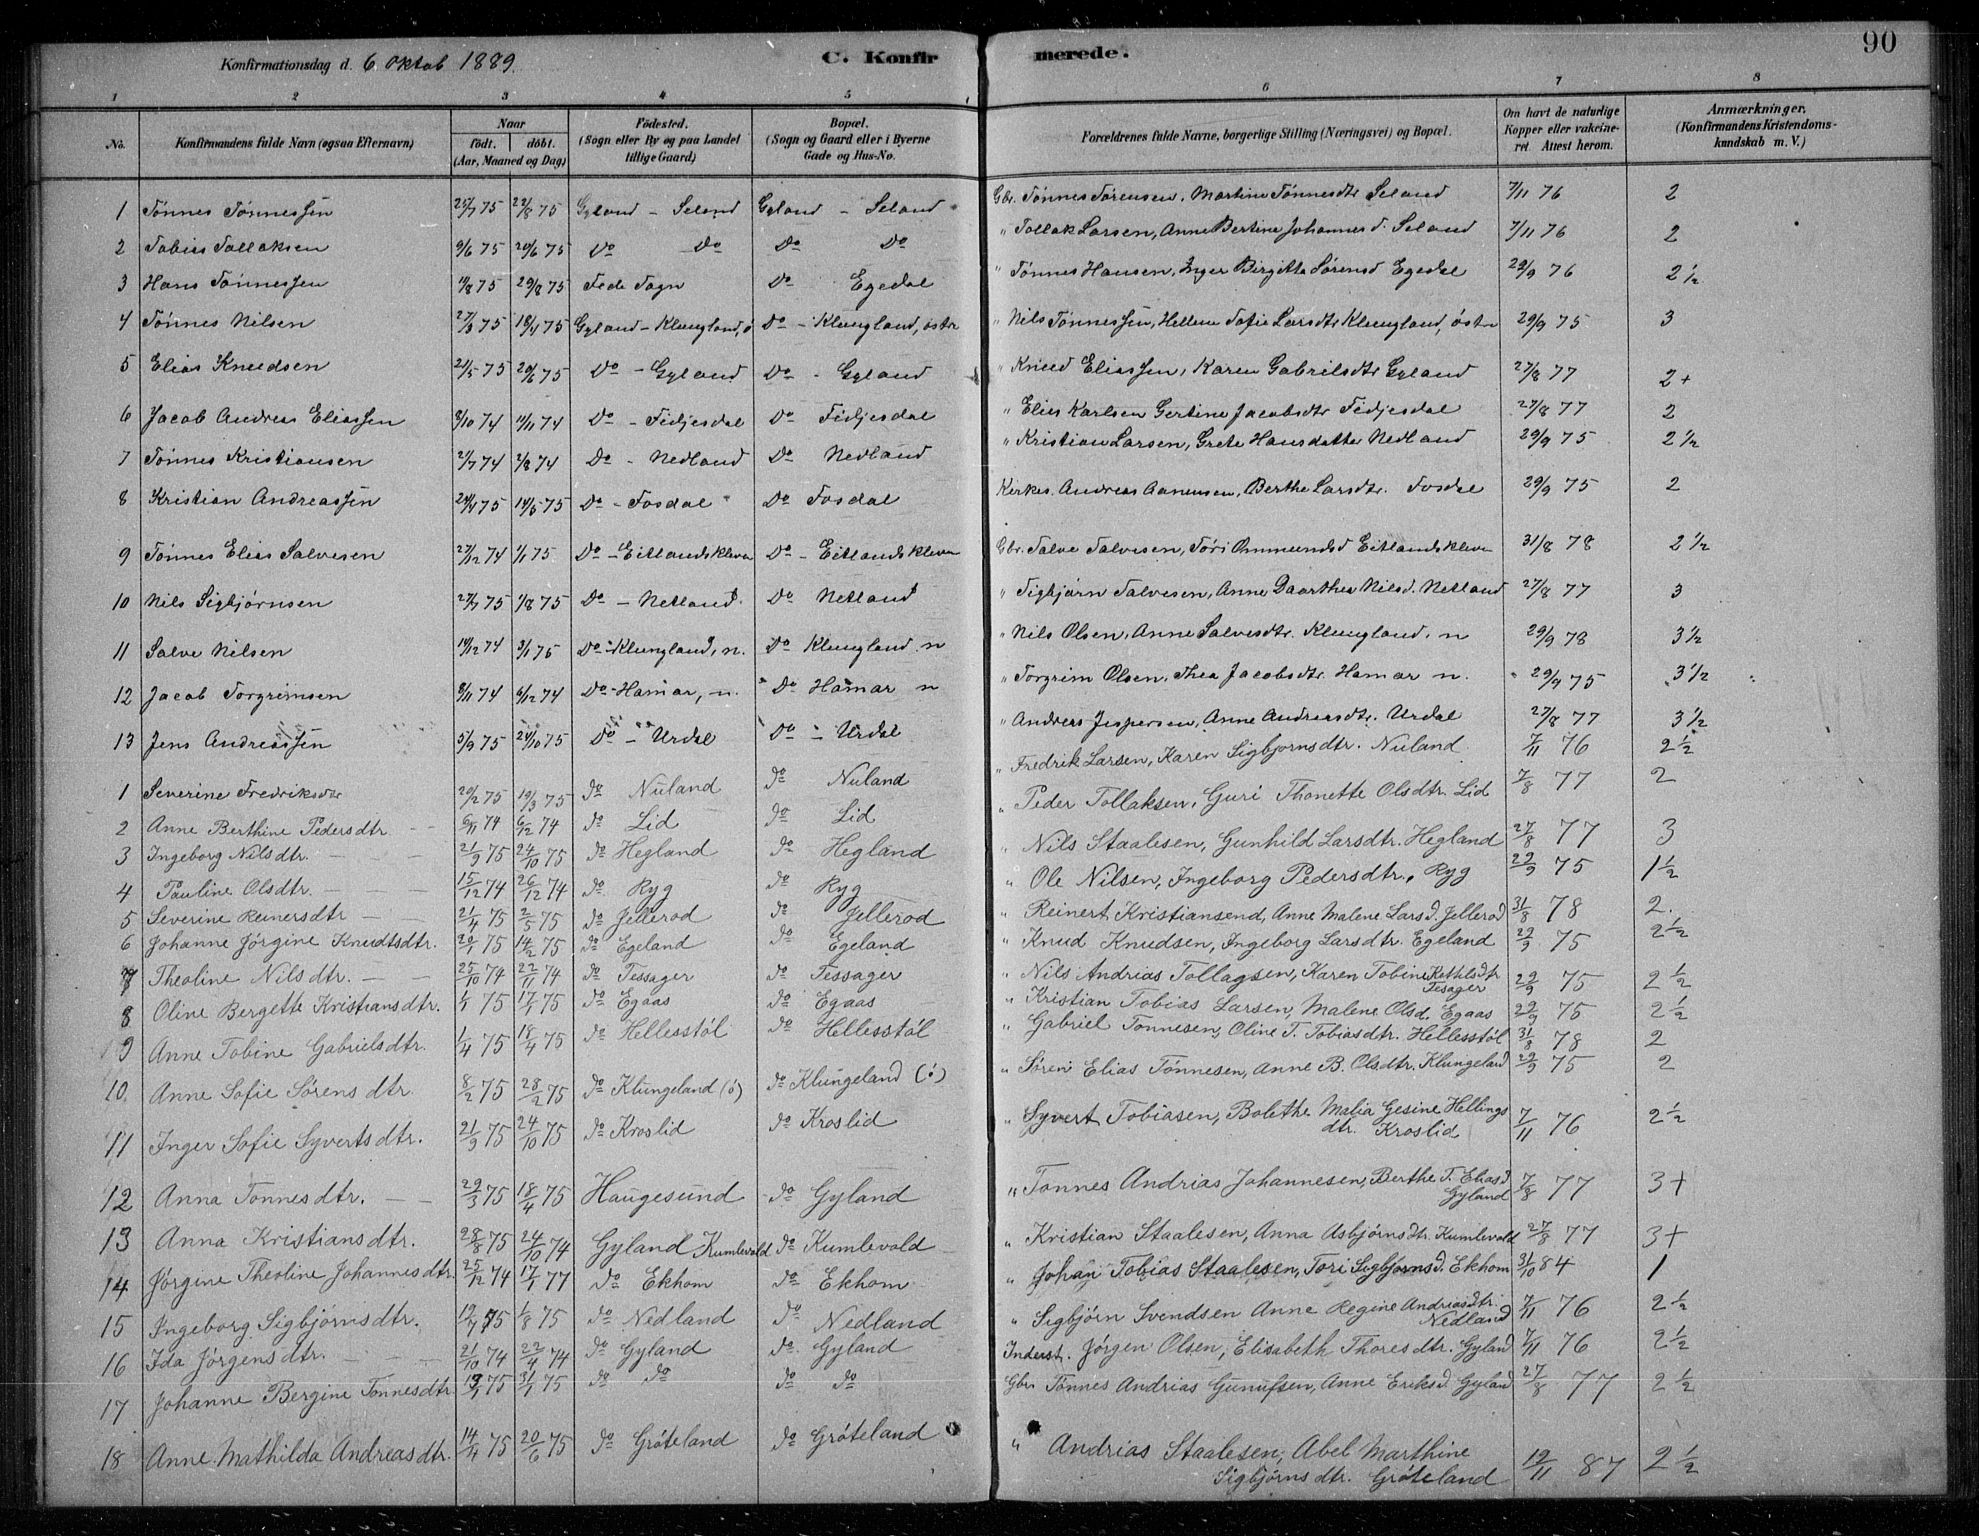 90
Konfirmationsdag d. 6 Oktob 1889. C. Konfirmerede.
1 2 3 4 5 6 7 8
No. Konfirmandens fulde Navn (ogsaa Efternavn) Naar født. døbt. (Aar, Maaned og Dag) Fødested. (Sogn eller By og paa Landet tillige Gaard) Bopæl. (Sogn og Gaard eller i Byerne Gade og Hus-No. Forældrenes fulde Navne, borgerlige Stilling (Næringsvei) og Bopæl. Om havt de naturlige Kopper eller vakcineret Attest herom. Anmærkninger. (Konfirmandens Kristendomskundskab m. V.)
1 Tönnes Tönnessen 25/7 75 22/8 75 Gyland - Seland Gyland - Seland Gbr. Tönnes Sörensen, Martine Tönnesdtr Seland 7/11 76 2
2 Tobias Tollaksen 9/6 75 20/6 75 Do Do Do Do " Tollak Larsen, Anne Bertine Johannesd. Seland 7/11 76 2
3 Hans Tönnessen 11/8 75 29/8 75 Fede Sogn Do Egedal " Tönnes Hansen, Inger Birgitte Sörensd Egedal 29/9 76 2 1/2
4 Tönnes Nilsen 27/3 75 18/4 75 Gyland - Klungland, ö Do - Klungland, östre " Nils Tönnessen, Hellene Sofie Larsdtr Klungland, östre 29/9 75 3
5 Elias Knudsen 21/5 75 20/6 75 Do - Gyland Do - Gyland " Knud Eliassen, Karen Gabrilsdtr Gyland 27/8 77 2+
6 Jacob Andreas Eliassen 8/10 74 11/11 74 Do - Fidjesdal Do Fidjesdal " Elias Karlsen Gertine Jacobsdtr Fidjesdal 27/8 77 2
7 Tönnes Kristiansen 21/7 74 2/8 74 Do - Nedland Do Nedland " Kristian Larsen, Grete Hansdatter Nedland 29/9 75 2 1/2
8 Kristian Andreassen 24/4 75 14/5 75 Do - Fosdal Do Fosdal Kirkes. Andreas Aanensen, Berthe Larsdtr. Fosdal 29/9 75 2
9 Tönnes Elias Salvesen 27/12 74 1/1 75 Do - Eitlandskleven Do - Eitlandskleven Gbr. Salve Salvesen, Töri Ommundsd Eitlandskleven 31/8 78 2 1/2
10 Nils Sigbjörnsen 24/7 75 1/8 75 Do - Netland Do Netland " Sigbjörn Salvesen, Anne Daarthea Nilsd. Netland 27/8 77 3
11 Salve Nilsen 14/12 74 3/1 75 Do - Klungland, n. Do Klungland n " Nils Olsen, Anne Salvesdtr. Klungland, n 29/9 78 3 1/2
12 Jacob Torgrimsen 8/11 74 6/12 74 Do - Hamar, n. Do Hamar n " Torgrim Olsen, Thea Jacobsdtr. Hamar n. 29/9 75 3 1/2
13 Jens Andreassen 5/9 75 24/10 75 Do - Urdal Do - Urdal " Andreas Jespersen, Anne Andreasdtr. Urdal 27/8 77 3 1/2
1 Severine Fredriksdtr 20/2 75 19/3 75 do Nuland do Nuland " Fredrik Larsen, Karen Sigbjornsdtr. Nuland 7/11 76 2 1/2
2 Anne Berthine Pedersdtr 6/11 74 6/12 74 do Lid do Lid " Peder Tollaksen, Guri Thonette Olsdtr. Lid 7/8 77 2
3 Ingeborg Nilsdtr. 21/9 75 24/10 75 do Hegland do Hegland " Nils Staalesen, Gunhild Larsdtr. Hegland 27/8 77 3
4 Pauline Olsdtr. 15/12 74 26/12 74 do Ryg do Ryg " Ole Nilsen, Ingeborg Pedersdtr, Ryg 29/9 75 1 1/2
5 Severine Reinersdtr 21/4 75 2/5 75 do Jellerod do Jellerod " Reinert Kristiansend, Anne Malene Larsd. Jellerod 31/8 78 2.
6 Johanne Jörgine Knudtsdtr. 20/1 75 14/2 75 do Egeland do Egeland " Knud Knudsen, Ingeborg Larsdtr. Egeland 29/9 75 2 1/2
7 Theoline Nilsdtr. 25/10 74 22/11 74 do Tessager do Tessager " Nils Andrias Tollagsen, Karen Tobine Kethlsdtr Tesager 29/9 75 2 1/2
8 Oline Bergette Kristiansdtr. 1/1 75 17/1 75 do Egaas do Egaas " Kristian Tobias Larsen, Malene Olsd. Egaas 29/9 75 2 1/2
9 Anne Tobine Gabrielsdtr. 1/4 75 18/4 75 do Hellesstöl do Hellesstöl " Gabriel Tonnesen, Oline T. Tobiasdtr. Hellesstöl 31/8 78 2
10. Anne Sofie Sörensdtr. 8/2 75 28/2 75 do Klungeland (ö) do Klungeland (ö) " Sören Elias Tönnesen, Anne B. Olsdtr. Klungeland 29/9 75 2
11 Inger Sofie Syvertsdtr. 21/9 75 24/10 75 do Kroslid do Kroslid " Syvert Tobiasen, Bolethe Malia Gesine Hellings dtr. Kroslid 7/11 76 2 1/2
12 Anna Tonnesdtr. 29/3 75 18/4 75 Haugesund do Gyland " Tonnes Andrias Johannesen, Berthe T. Eliasd Gyland 7/8 77 3+
13 Anna Kristiansdtr. 28/8 75 24/10 74 Gyland Kumlevold do Kumlevold " Kristian Staalesen, Anna Asbjörnsdtr. Kumlevold 27/8 77 3+
14 Jörgine Theoline Johannesdtr. 25/12 74 17/1 77 do Ekhom do Ekhom " Johan Tobias Staalesen, Tori Sigbjornsd. Ekhom 31/10 84 1
15 Ingeborg Sigbjörnsdtr. 12/7 75 1/8 75 do Nedland do Nedland " Sigbjörn Svendsen Anne Regine Andriasdtr. Nedland 7/11 76 2 1/2
16 Ida Jörgensdtr. 21/10 74 22/4 74 do Gyland do Gyland Inderst. Jörgen Olsen, Elisabeth Thoresdtr. Gyland 7/11 76 2 1/2
17 Johanne Bergine Tonnesdtr 13/1 75 31/1 75 do do do do Gbr Tönnes Andrias Gunufsen, Anne Eriksd. Gyland 27/8 77 2 1/2
18 Anne Mathilda Andreasdtr. 14/4 75 20/6 75 do Gröteland do Gröteland " Andrias Staalesen, Abel Marthine Sigbjörnsdtr. Gröteland 19/11 87 2 1/2